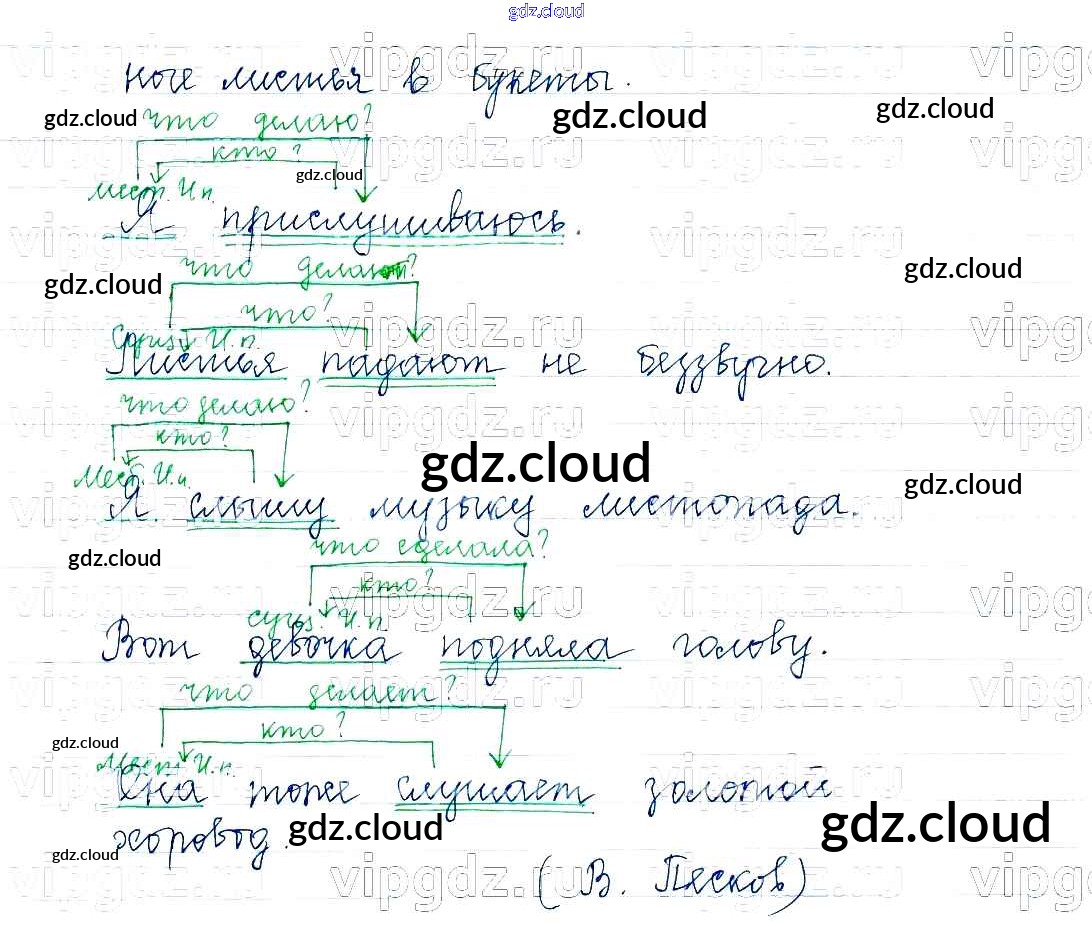 gdz.cloud
ные листья в букеты.
gdz.cloud что делаю? gdz.cloud gdz.cloud
кто? gdz.cloud
мест. И.п.
Я прислушиваюсь.
gdz.cloud что делают? gdz.cloud
что?
сущ. И.п.
Листья падают не беззвучно.
что делаю?
кто? gdz.cloud
Мест. И.п. gdz.cloud
Я слышу музыку листопада.
gdz.cloud что сделала?
кто?
сущ. И.п.
Вот девочка подняла голову.
что делает?
gdz.cloud кто?
Мест. И.п.
Она тоже слушает золотой
хоровод. gdz.cloud gdz.cloud
gdz.cloud (В. Песков)
vipgdz.ru